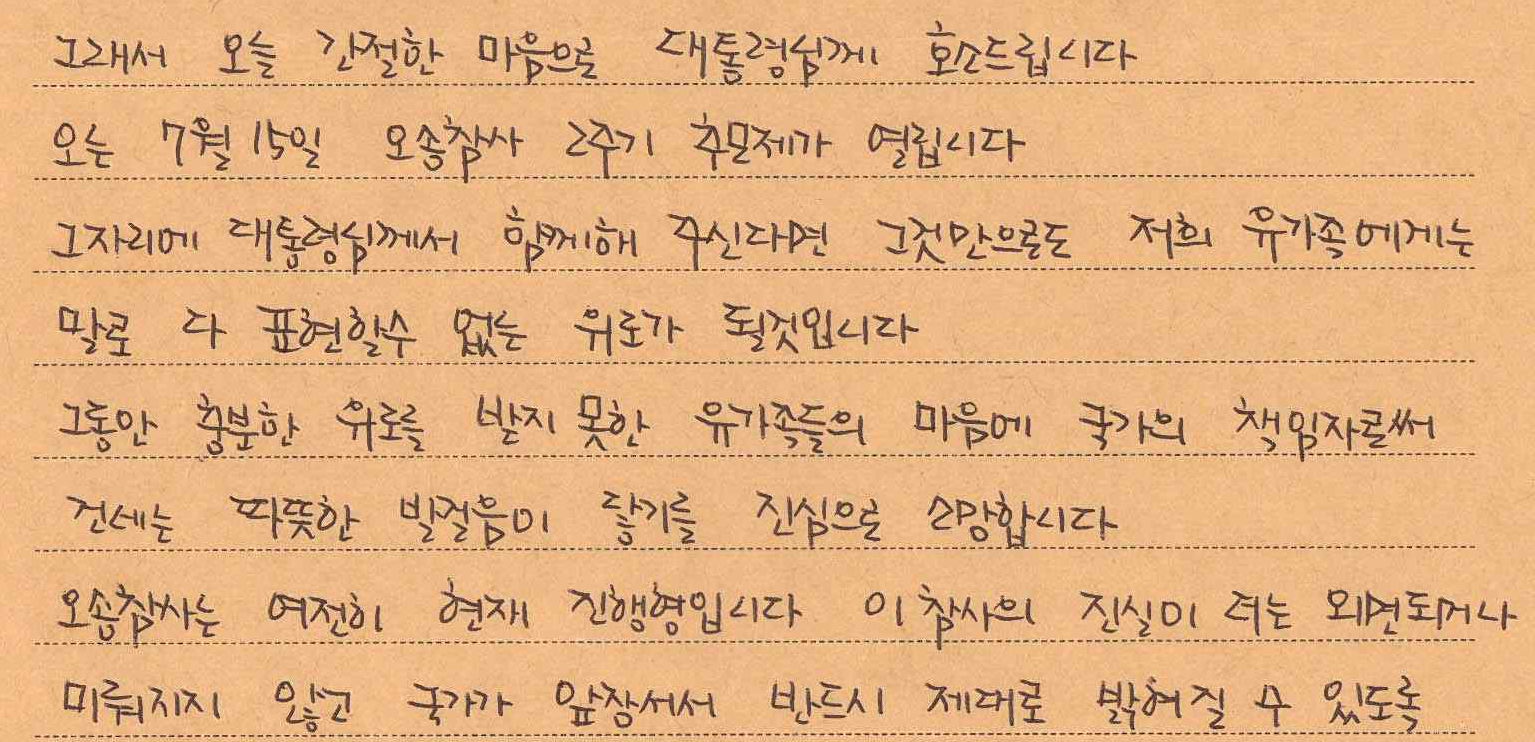 그래서 오늘 간절한 마음으로 대통령님께 호소드립니다
오는 7월 15일 오송참사 2주기 추모제가 열립니다
그자리에 대통령님께서 함께해 주신다면 그것만으로도 저희 유가족에게는
말로 다 표현할수 없는 위로가 될것입니다
그동안 충분한 위로를 받지 못한 유가족들의 마음에 국가의 책임자로써
건네는 따뜻한 발걸음이 닿기를 진심으로 소망합니다
오송참사는 여전히 현재 진행형입니다 이 참사의 진실이 더는 외면되거나
미뤄지지 않고 국가가 앞장서서 반드시 제대로 밝혀질 수 있도록